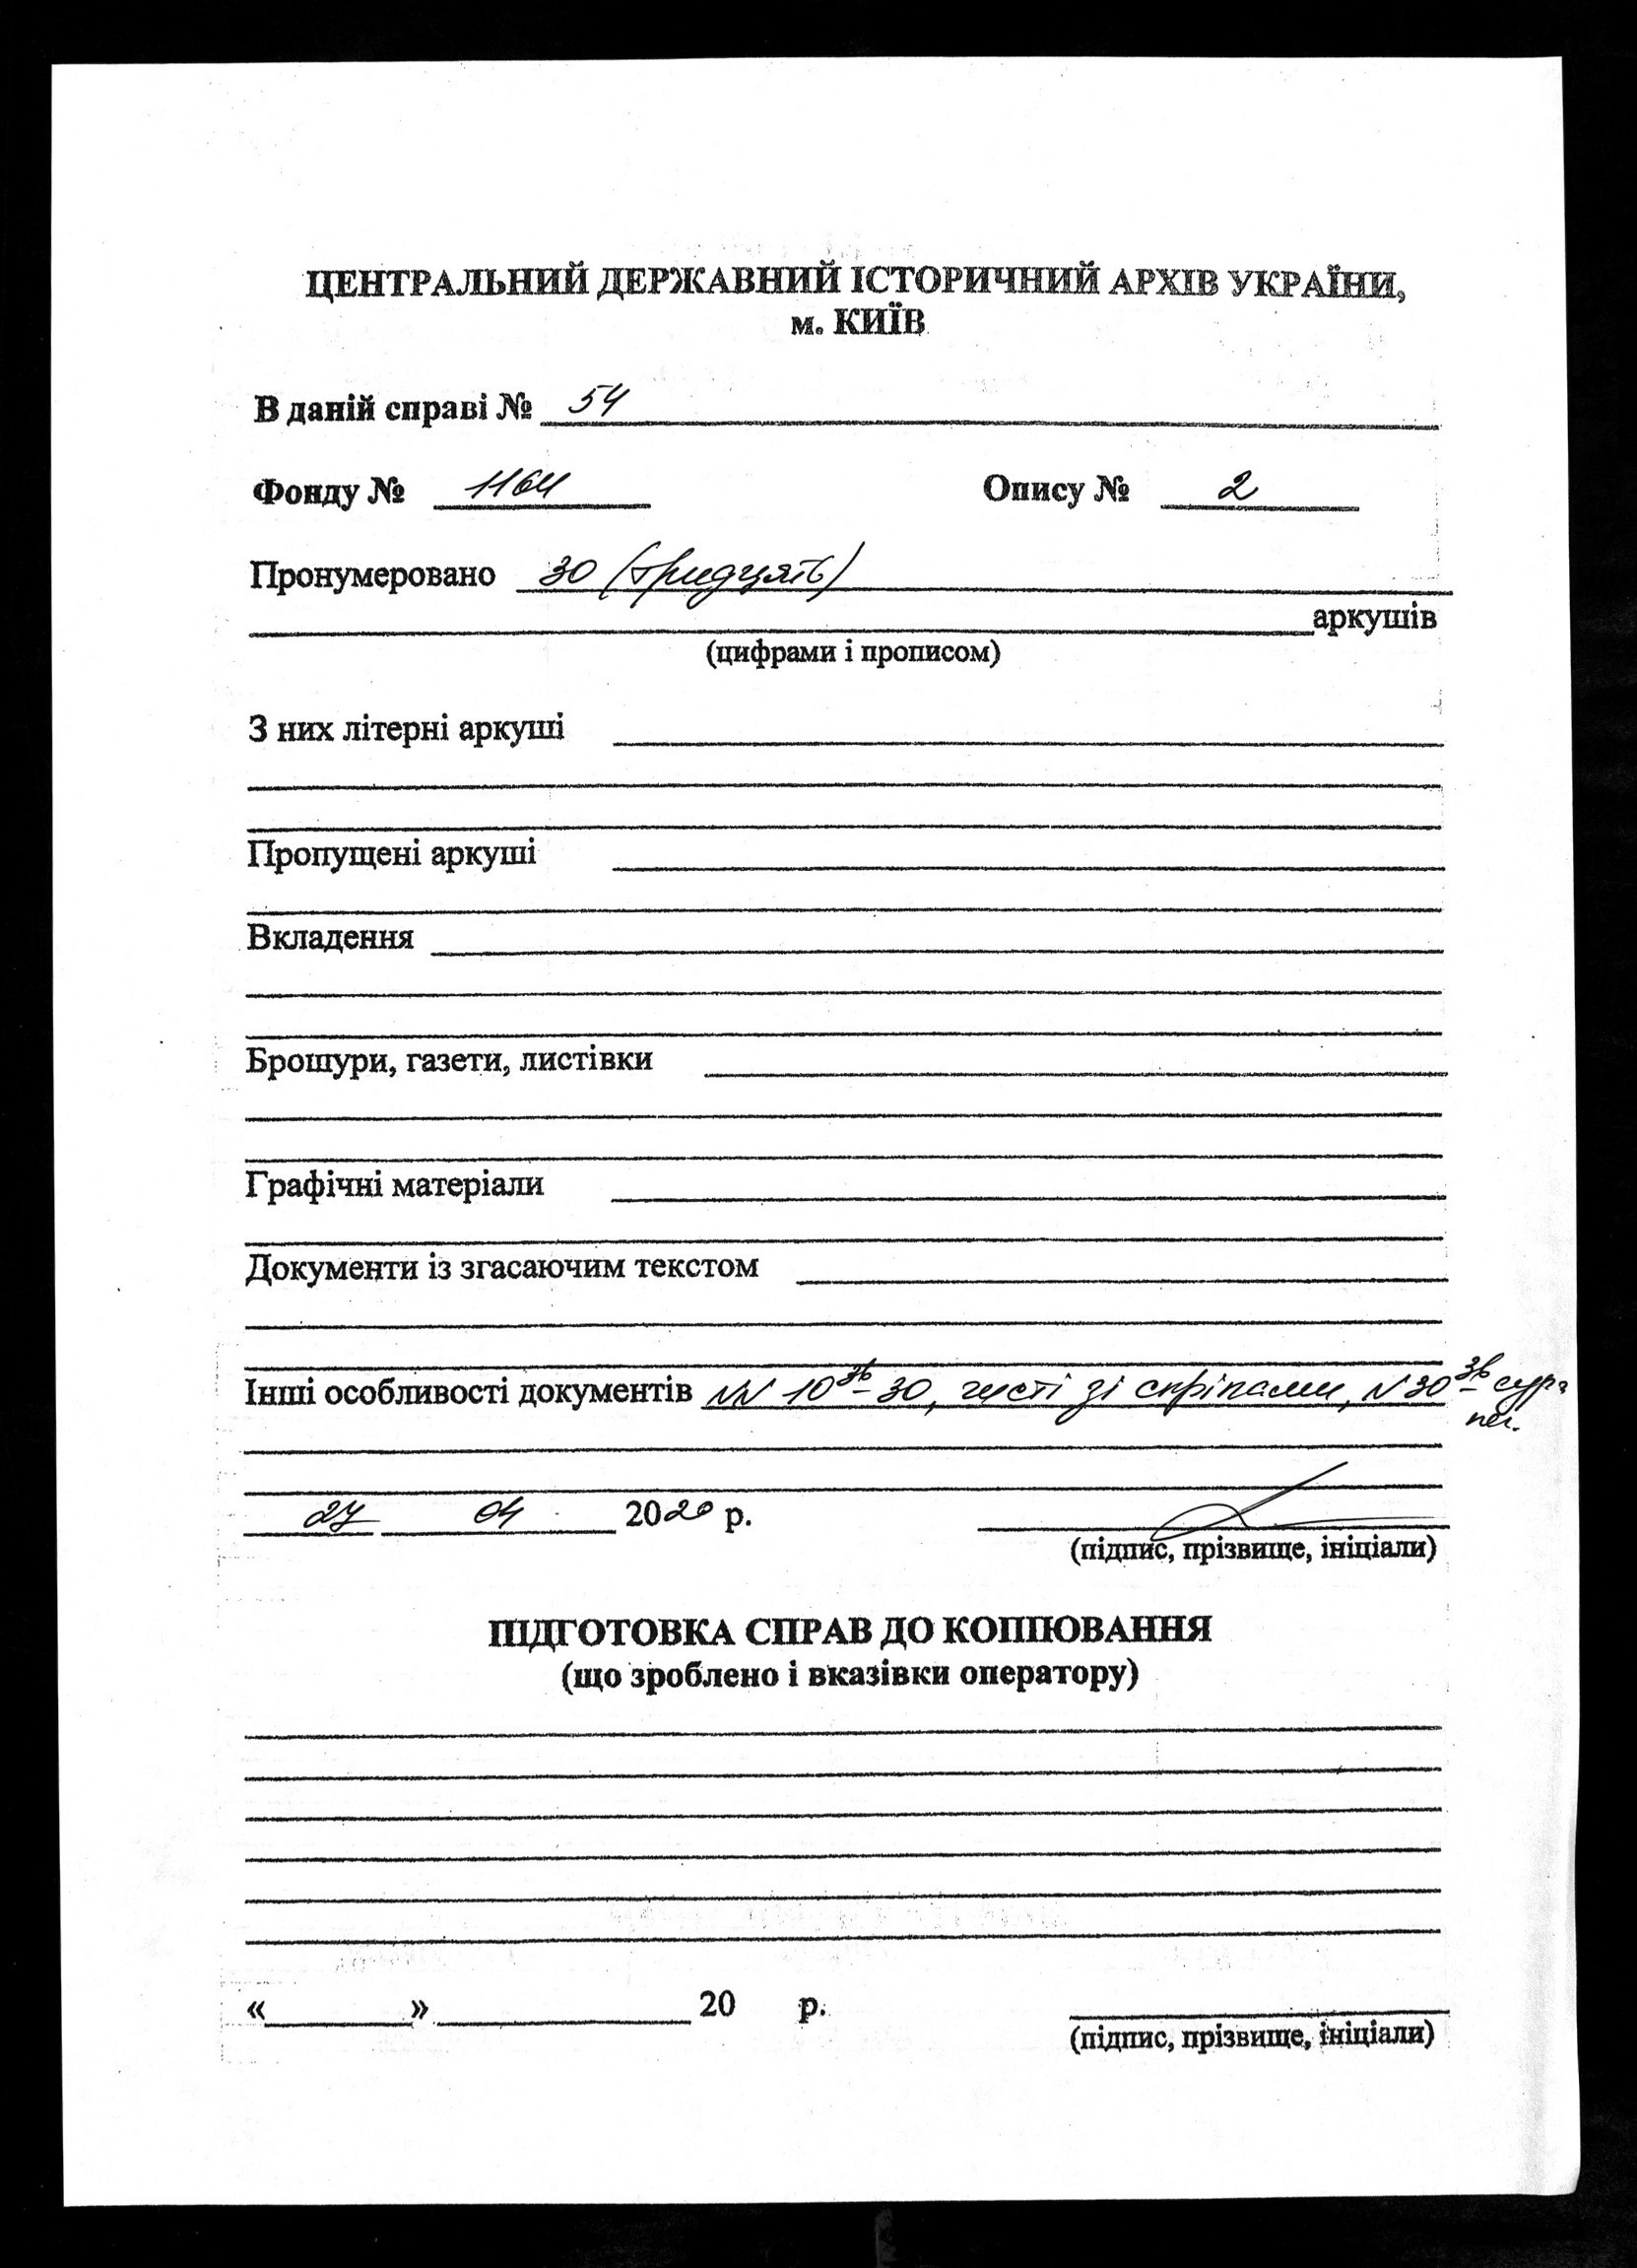 ЦЕНТРАЛЬНИЙ ДЕРЖАВНИЙ ІСТОРИЧНИЙ АРХІВ УКРАЇНИ,
м. КИЇВ
В даній справі № 54
Фонду № 1164 Опису № 2
Пронумеровано 30 (тридцять)
аркушів
(цифрами і прописом)
З них літерні аркуші
Пропущені аркуші
Вкладення
Брошури, газети, листівки
Графічні матеріали
Документи із згасаючим текстом
Інші особливості документів №№ 10зв – 30, чисті зі скріпами, № 30зв – сург.
печ.
27 04 2020 р.
(підпис, прізвище, ініціали)
ПІДГОТОВКА СПРАВ ДО КОПІЮВАННЯ
(що зроблено і вказівки оператору)
« » 20 р.
(підпис, прізвище, ініціали)